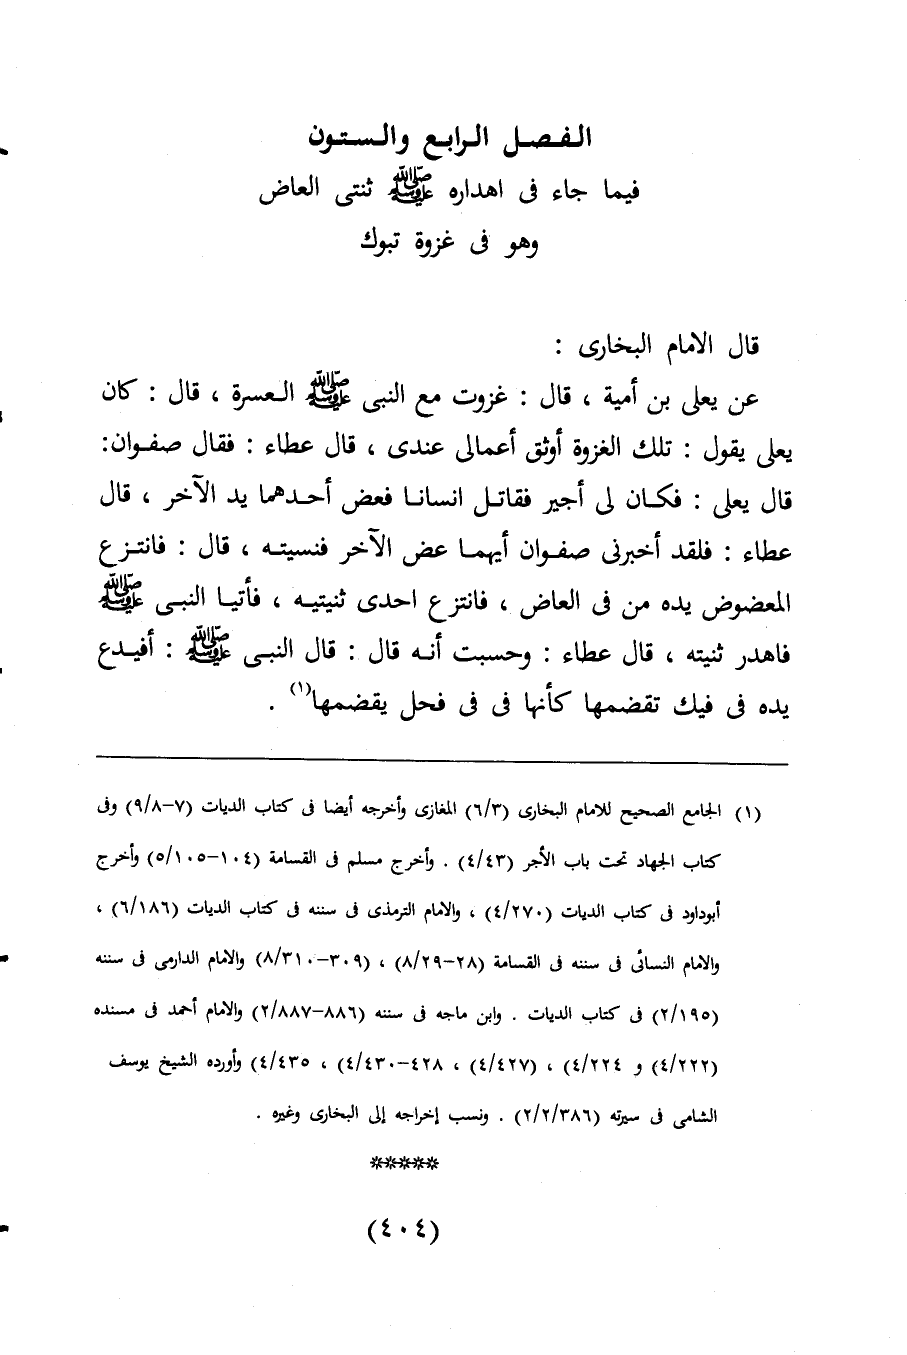 الفصل الرابع والستون
فيما جاء فى اهداره ﷺ ثنتى العاض
وهو فى غزوة تبوك
قال الامام البخارى :
عن يعلى بن أمية ، قال : غزوت مع النبى ﷺ العسرة ، قال : كان
يعلى يقول : تلك الغزوة أوثق أعمالى عندى ، قال عطاء : فقال صفوان:
قال يعلى : فكان لى أجير فقاتل انسانا فعض أحدهما يد الآخر ، قال
عطاء : فلقد أخبرنى صفوان أيهما عض الآخر فنسيته ، قال : فانتزع
المعضوض يده من فى العاض ، فانتزع احدى ثنيتيه ، فأتيا النبى ﷺ
فاهدر ثنيته ، قال عطاء : وحسبت أنه قال : قال النبى ﷺ : أفيدع
يده فى فيك تقضمها كأنها فى فى فحل يقضمها(١) .
(١) الجامع الصحيح للامام البخارى (٦/٣) المغازى وأخرجه أيضا فى كتاب الديات (٧-٩/٨) وفى
كتاب الجهاد تحت باب الأجر (٤/٤٣) . وأخرج مسلم فى القسامة (١٠٤-٥/١٠٥) وأخرج
أبوداود فى كتاب الديات (٤/٢٧٠) ، والامام الترمذى فى سننه فى كتاب الديات (٦/١٨٦) ،
والامام النسائى فى سننه فى القسامة (٢٨-٨/٢٩) ، (٣٠٩-٨/٣١٠) والامام الدارمى فى سننه
(٢/١٩٥) فى كتاب الديات . وابن ماجه فى سننه (٨٨٦-٢/٨٨٧) والامام أحمد فى مسنده
(٤/٢٢٢) و ٤/٢٢٤) ، (٤/٤٢٧) ، ٤٢٨-٤/٤٣٠) ، ٤/٤٣٥) وأورده الشيخ يوسف
الشامى فى سيرته (٢/٢/٣٨٦) . ونسب إخراجه إلى البخارى وغيره .
*****
(٤٠٤)